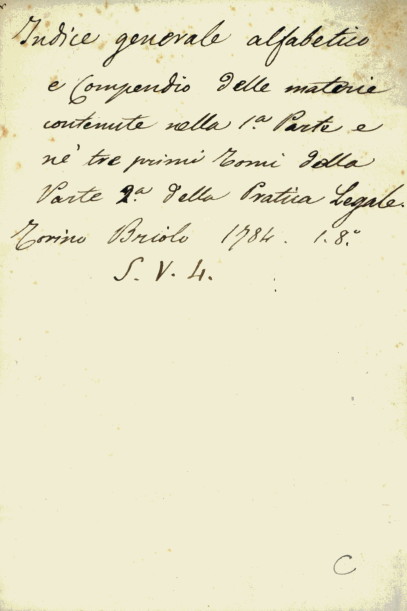 Indice generale alfabetico
e Compendio delle materie
contenute nella 1.a Parte e
ne' tre primi Tomi della
Parte 2.a della Pratica Legale.
Torino Briolo 1784. 1. 8.°
S. V. 4.
C